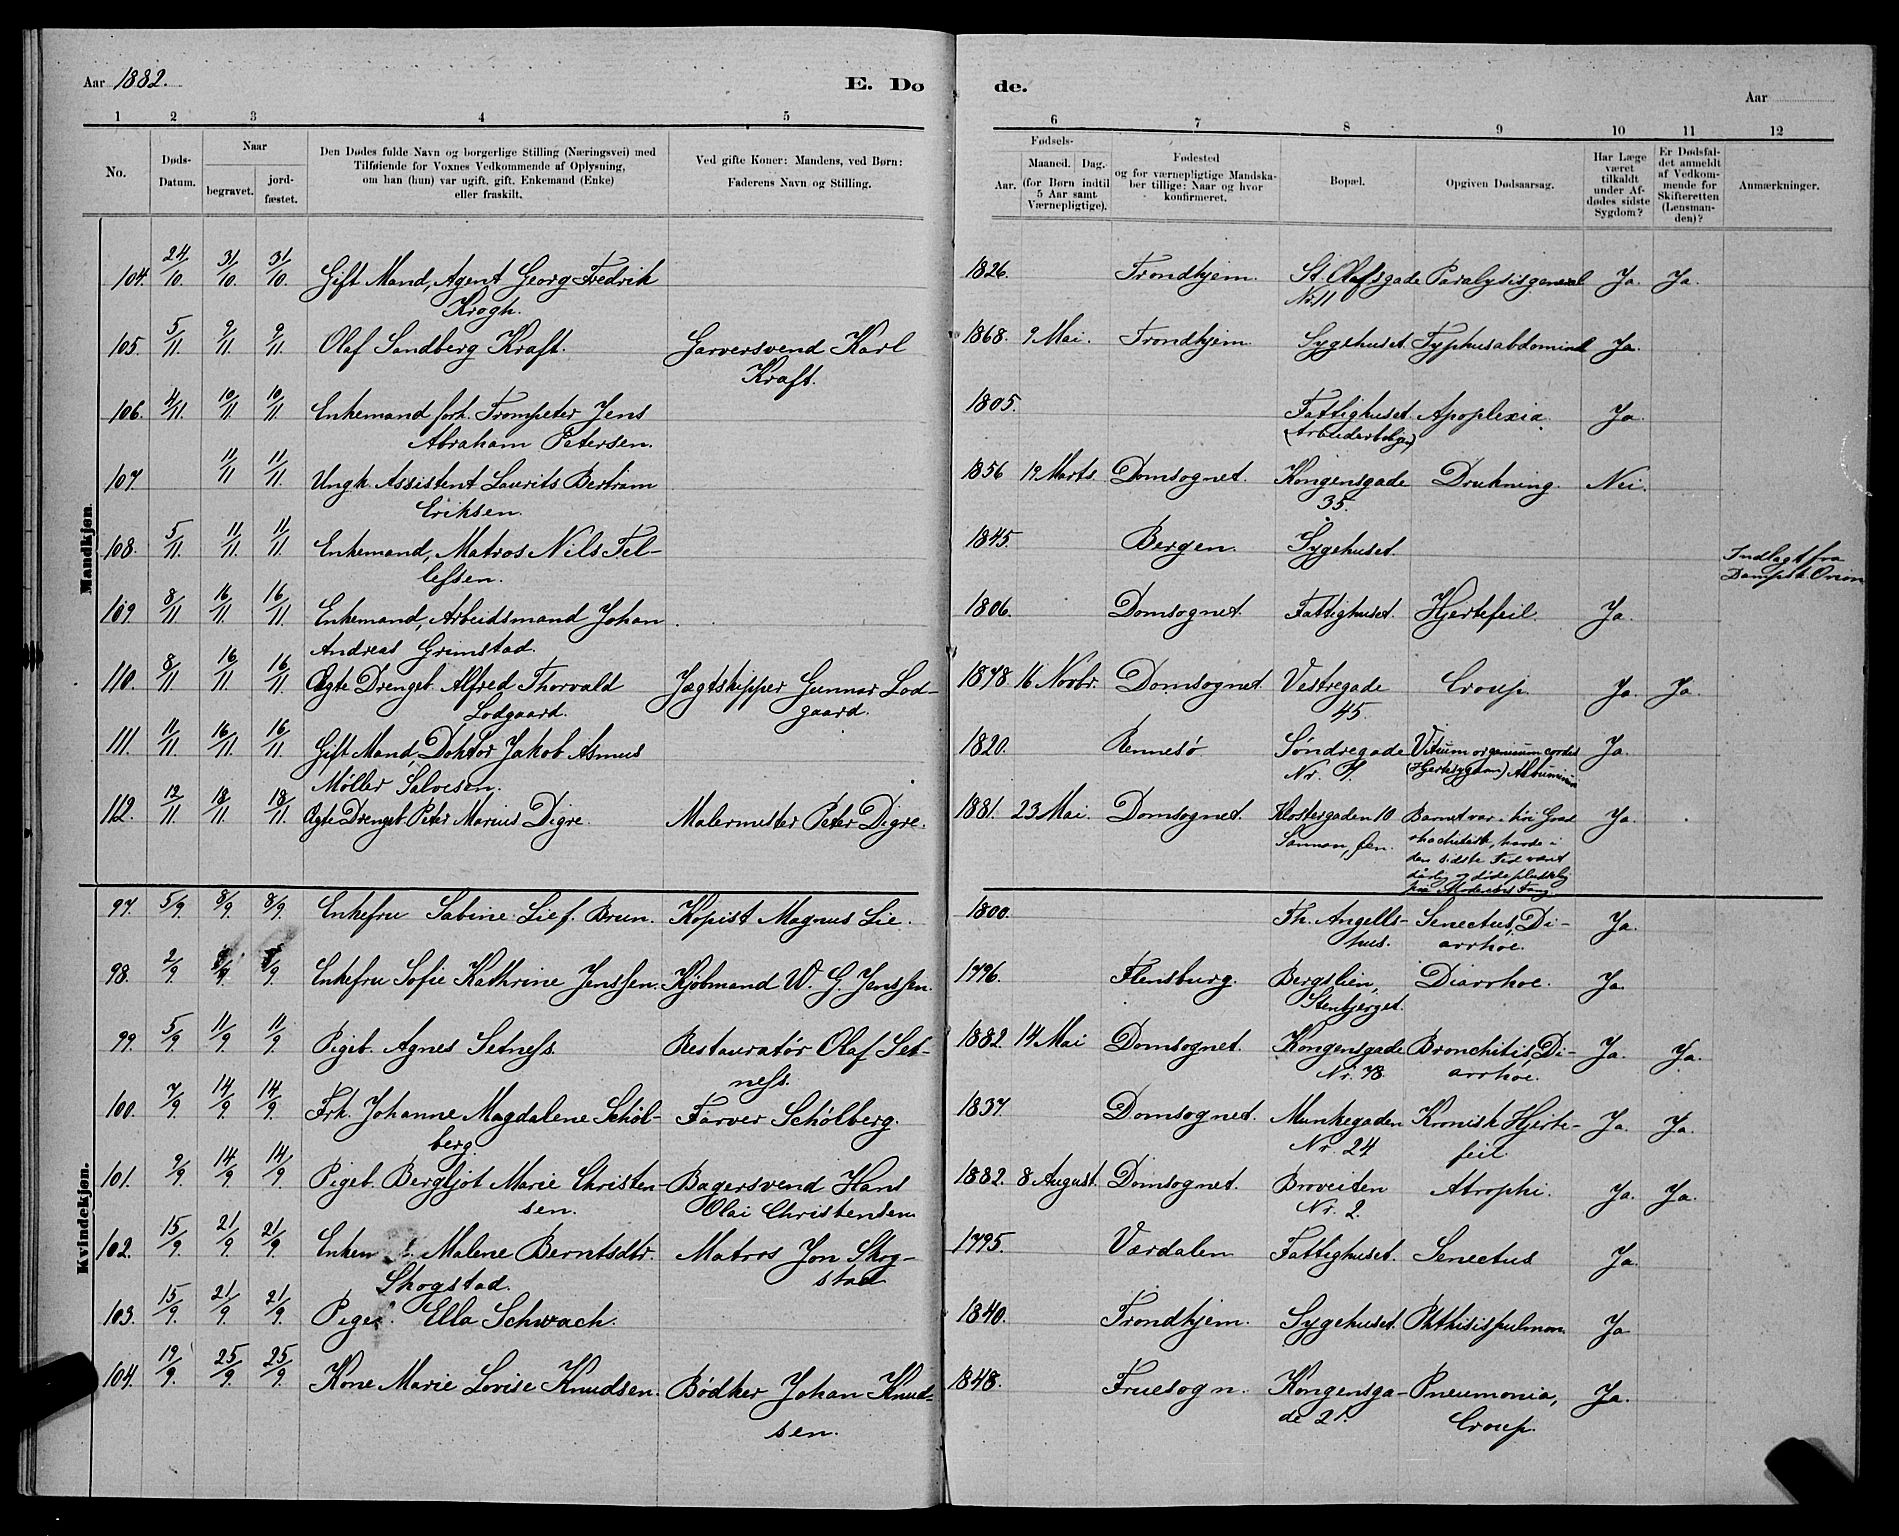 Aar 1882.
E. Dø
de.
Aar
1 2 3 4 5 6 7 8 9 10 11 12
No.
Døds-Datum.
Naar
begravet.
jord-fæstet.
Den Dødes fulde Navn og borgerlige Stilling (Næringsvei) med
Tilføiende for Voxnes Vedkommende af Oplysning,
om han (hun) var ugift, gift, Enkemand (Enke)
eller fraskilt.
Ved gifte Koner: Mandens, ved Børn:
Faderens Navn og Stilling.
Fødsels-
Aar.
Maaned. Dag.
(for Børn indtil
5 Aar samt
Værnepligtige).
Fødested
og for værnepligtige Mandska-
ber tillige: Naar og hvor
konfirmeret.
Bopæl.
Opgiven Dødsaarsag.
Har Læge
været
tilkaldt
under Af-
dødes sidste
Sygdom?
Er Dødsfal-
det anmeldt
af Vedkom-
mende for
Skifteretten
(Lensman-
den)?
Anmærkninger.
Mandkjøn.
104. 24/10 31/10 31/10 Gift Mand, Agent Georg Fredrik 1826. Trondhjem. St. Olafsgade Paralysis general Ja. Ja.
Krogh. Nr. 11
105. 5/11 9/11 9/11 Olaf Sandberg Kraft. Garversvend Karl 1868. 9 Mai. Trondhjem. Sygehuset. Typhus abdominal Ja.
Kraft.
106. 4/11 10/11 10/11 Enkemand forh. Trompeter Jens 1805. Fattighuset. Apoplexia. Ja.
Abraham Petersen.
107 11/11 11/11 Ungk. Assistent Laurits Bertram 1856 19 Marts. Domsognet. Kongensgade Drukning. Nei.
Eriksen. 35.
108. 5/11 11/11 11/11 Enkemand, Matros Nils Tel- 1845. Bergen. Sygehuset.
lefsen. Indlagt fra
Dampsk. Orion
109. 8/11 16/11 16/11 Enkemand, Arbeidsmand Johan 1806. Domsognet. Fattighuset. Hjertefeil. Ja.
Andreas Grimstad.
110. 8/11 16/11 16/11 Ægte Drengeb. Alfred Thorvald Jægtskipper Gunnar Lod- 1878 16 Novbr. Domsognet. Vestregade Croup. Ja. Ja.
Lodgaard. gaard. 45.
111. 11/11 16/11 16/11 Gift Mand, Doktor Jakob Asmus 1820. Rennesø Søndregade Vitium organicum cordis Ja.
Møller Salvesen. Nr. 7.
112. 12/11 18/11 18/11 Ægte Drengeb. Peter Marius Digre. Malermester Peter Digre. 1881. 23 Mai. Domsognet. Klostergaden 10 Barnet var i høi Grad Ja.
rhachitisk, havde i
den sidste Tid været
daarlig og døde pludselig
paa Moderens Fang.
Kvindekjøn.
97. 5/9 8/9 8/9 Enkefru Sabine Lie f. Brun. Kopist Magnus Lie. 1800. Th. Angells- Senectus, Di- Ja.
hus. arrhoe.
98. 2/9 8/9 8/9 Enkefru Sofie Kathrine Jenssen. Kjøbmand W. G. Jenssen. 1796. Flensburg. Bergslien, Diarrhoe. Ja.
Stenbjerget.
99. 5/9 11/9 11/9 Pigeb. Agnes Setness. Restauratør Olaf Set- 1882. 14 Mai Domsognet. Kongensgade Bronchitis, Di- Ja. Ja.
ness. Nr. 78. arrhoe.
100. 7/9 14/9 14/9 Frk. Johanne Magdalene Schøl- Farver Schølberg. 1837. Domsognet. Munkegaden Kronisk Hjerte- Ja. Ja.
berg. Nr. 24 feil.
101. 9/9 14/9 14/9 Pigeb. Bergljot Marie Christen- Bagersvend Hans 1882. 8 August. Domsognet. Broveiten Atrophi. Ja. Ja.
sen. Olai Christensen. Nr. 2.
102. 15/9 21/9 21/9 Malene Berntsdtr. Matros Jon Skog- 1795. Værdalen Fattighuset. Senectus Ja.
Skogstad. stad
103. 15/9 21/9 21/9 Ella Schwach. 1840. Trondhjem. Sygehuset. Phthisis pulmon. Ja.
104. 19/9 25/9 25/9 Kone Marie Lovise Knudsen. Bødker Johan Knud- 1848. Fruesogn. Kongensga- Pneumonia, Ja.
sen. de 21. Croup.